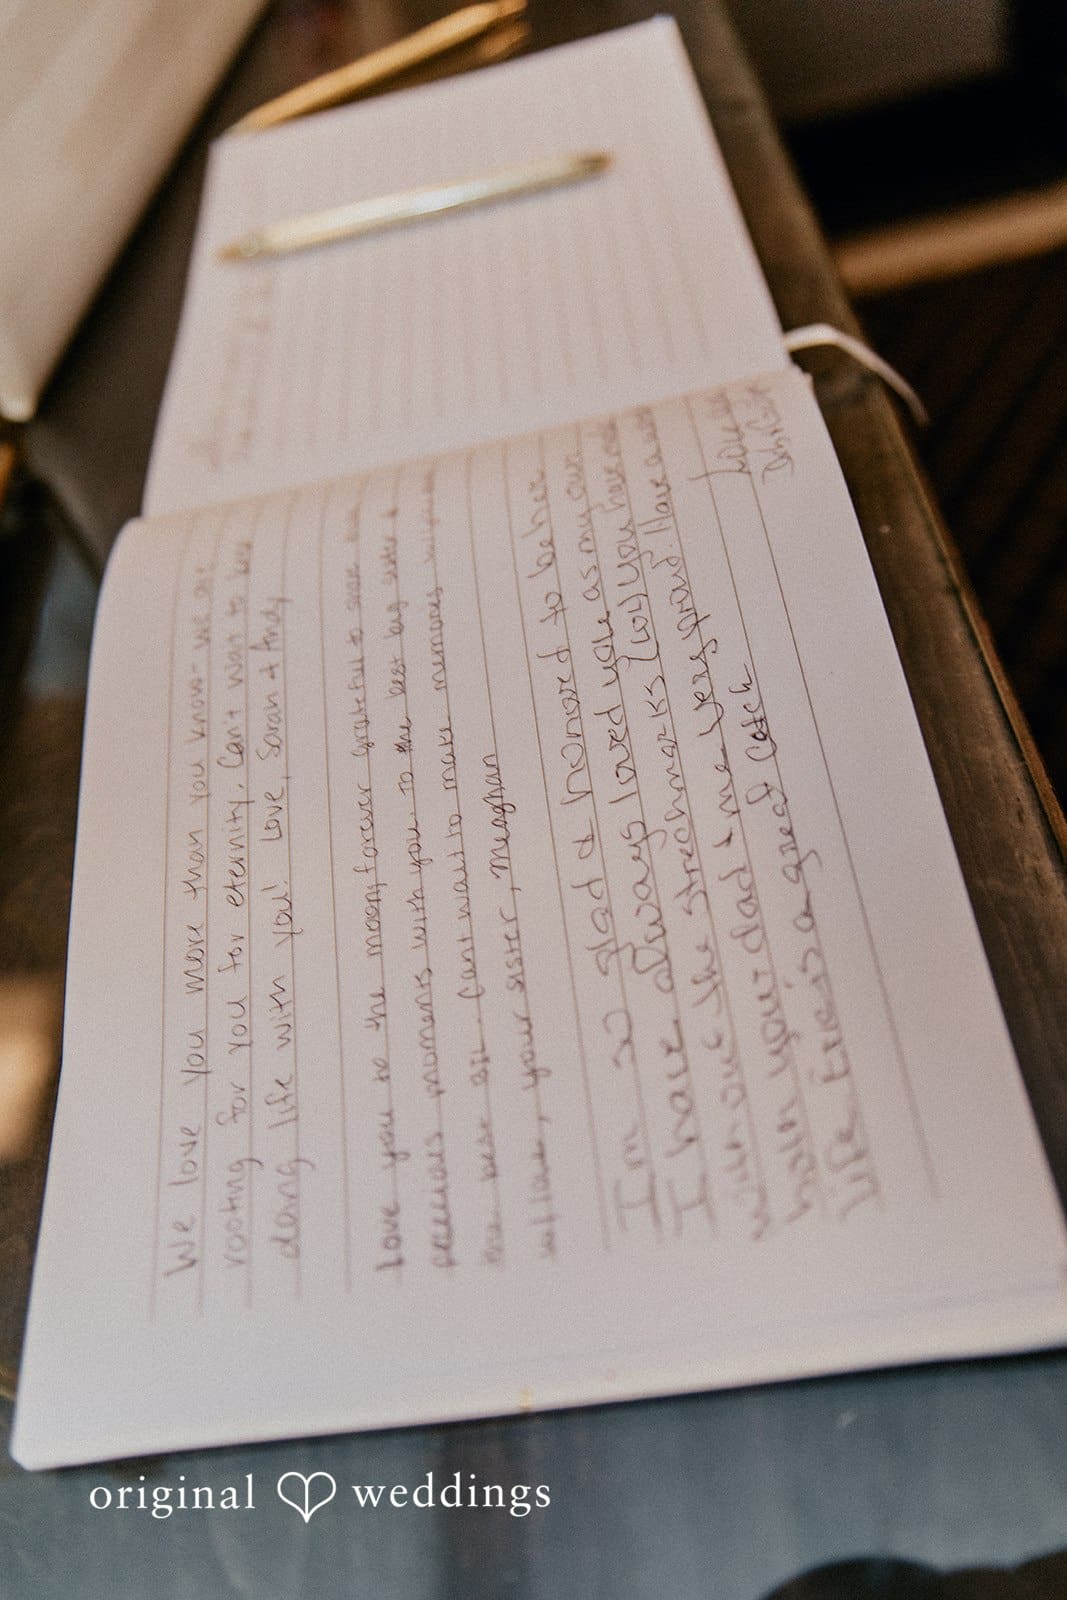 We love you more than you know - we are
rooting for you for eternity. Can't wait to keep
doing life with you! Love, Sarah & Andy
Love you to the moon, forever grateful to share
precious moments with you. To the best big sister &
new best BIL. Cant wait to make memories
love, your sister, Meaghan
I'm so glad & honored to be her
I have always loved you as my own
I have the strechmarks (lol) you have
without the Very proud. Have a
both your dad & me
life. Eric is a great catch
Love
original weddings